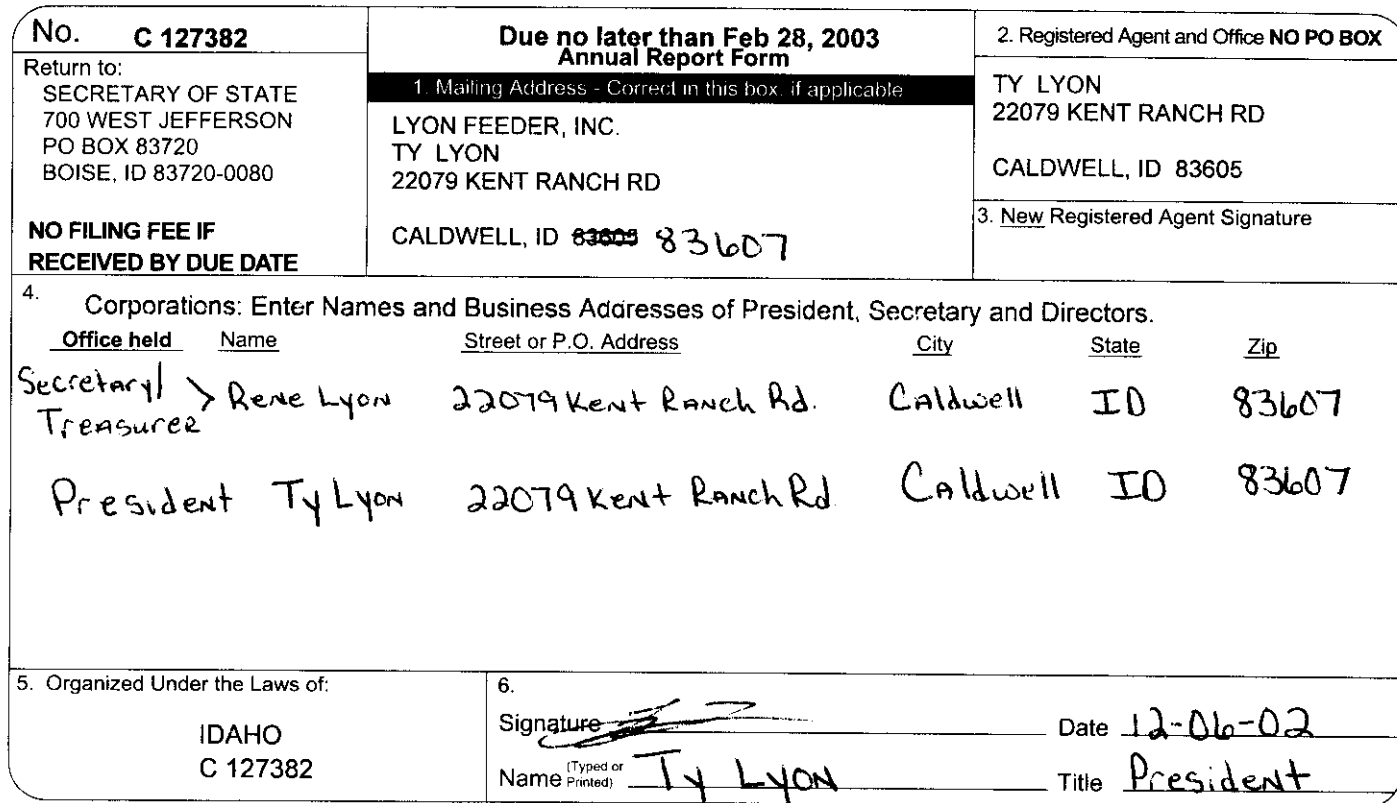 No. C 127382
Return to:
SECRETARY OF STATE
700 WEST JEFFERSON
PO BOX 83720
BOISE, ID 83720-0080
NO FILING FEE IF
RECEIVED BY DUE DATE
Due no later than Feb 28, 2003
Annual Report Form
1. Mailing Address - Correct in this box, if applicable
LYON FEEDER, INC.
TY LYON
22079 KENT RANCH RD
CALDWELL, ID 83605 83607
2. Registered Agent and Office NO PO BOX
TY LYON
22079 KENT RANCH RD
CALDWELL, ID 83605
3. New Registered Agent Signature
4. Corporations: Enter Names and Business Addresses of President, Secretary and Directors.
Office held Name Street or P.O. Address City State Zip
Secretary/
Treasurer > Rene Lyon 22079 Kent Ranch Rd. Caldwell ID 83607
President Ty Lyon 22079 Kent Ranch Rd Caldwell ID 83607
5. Organized Under the Laws of:
IDAHO
C 127382
6.
Signature Date 12-06-02
Name (Typed or Printed) Ty Lyon Title President